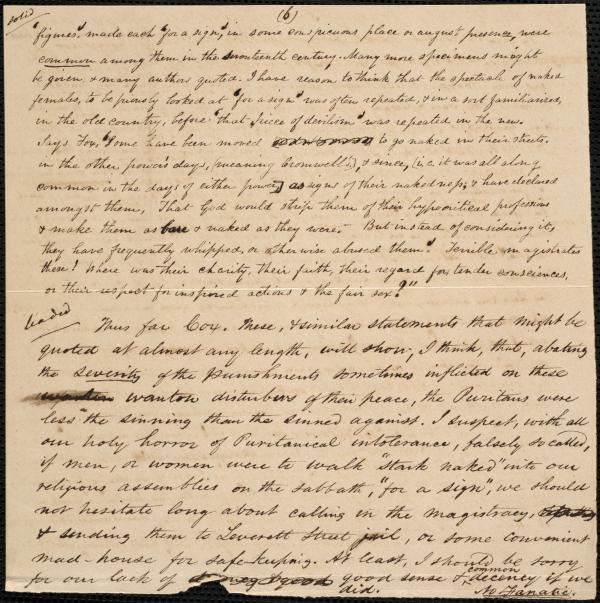 solid
(6)
"figures" made each "for a sign", in some conspicuous place or august presence, were
common among them in the seventeenth century. Many more specimens might
be given, & many authors quoted. I have reason to think that the spectacle of naked
females, to be piously looked at "for a sign" was often repeated, & in a sort familiarized,
in the old country, before "that piece of devilism" was repeated in the new.
Says Fox, "Some have been moved to go naked in their streets.
in the other power's days, [meaning Cromwell's], & since, [i.e. it was all along
common in the days of either power,] as signs of their nakedness; & have declared
amongst them, That God would strip them of their hypocritical professions
& make them as bare & naked as they were;- But instead of considering it,
they have frequently whipped, or otherwise abused them." Terrible magistrates
these! Where was their charity, their faith, their regard for tender consciences,
or their respect for inspired actions & the fair sex?"
leaded
Thus far Cox. These, & similar statements that might be
quoted at almost any length, will show, I think, that, abating
the severity of the punishments sometimes inflicted on these
wanton disturbers of their peace, the Puritans were
less "the sinning than the sinned against. I suspect, with all
our holy horror of Puritanical intolerance, falsely so called,
if men, or women were to walk "stark naked" into our
religious assemblies on the sabbath, "for a sign", we should
not hesitate long about calling in the magistracy,
& sending them to Leverett Street jail, or some convenient
mad-house for safe-keeping. At least, I should be sorry
for our lack of good sense & common decency if we
did.
No Fanatic.